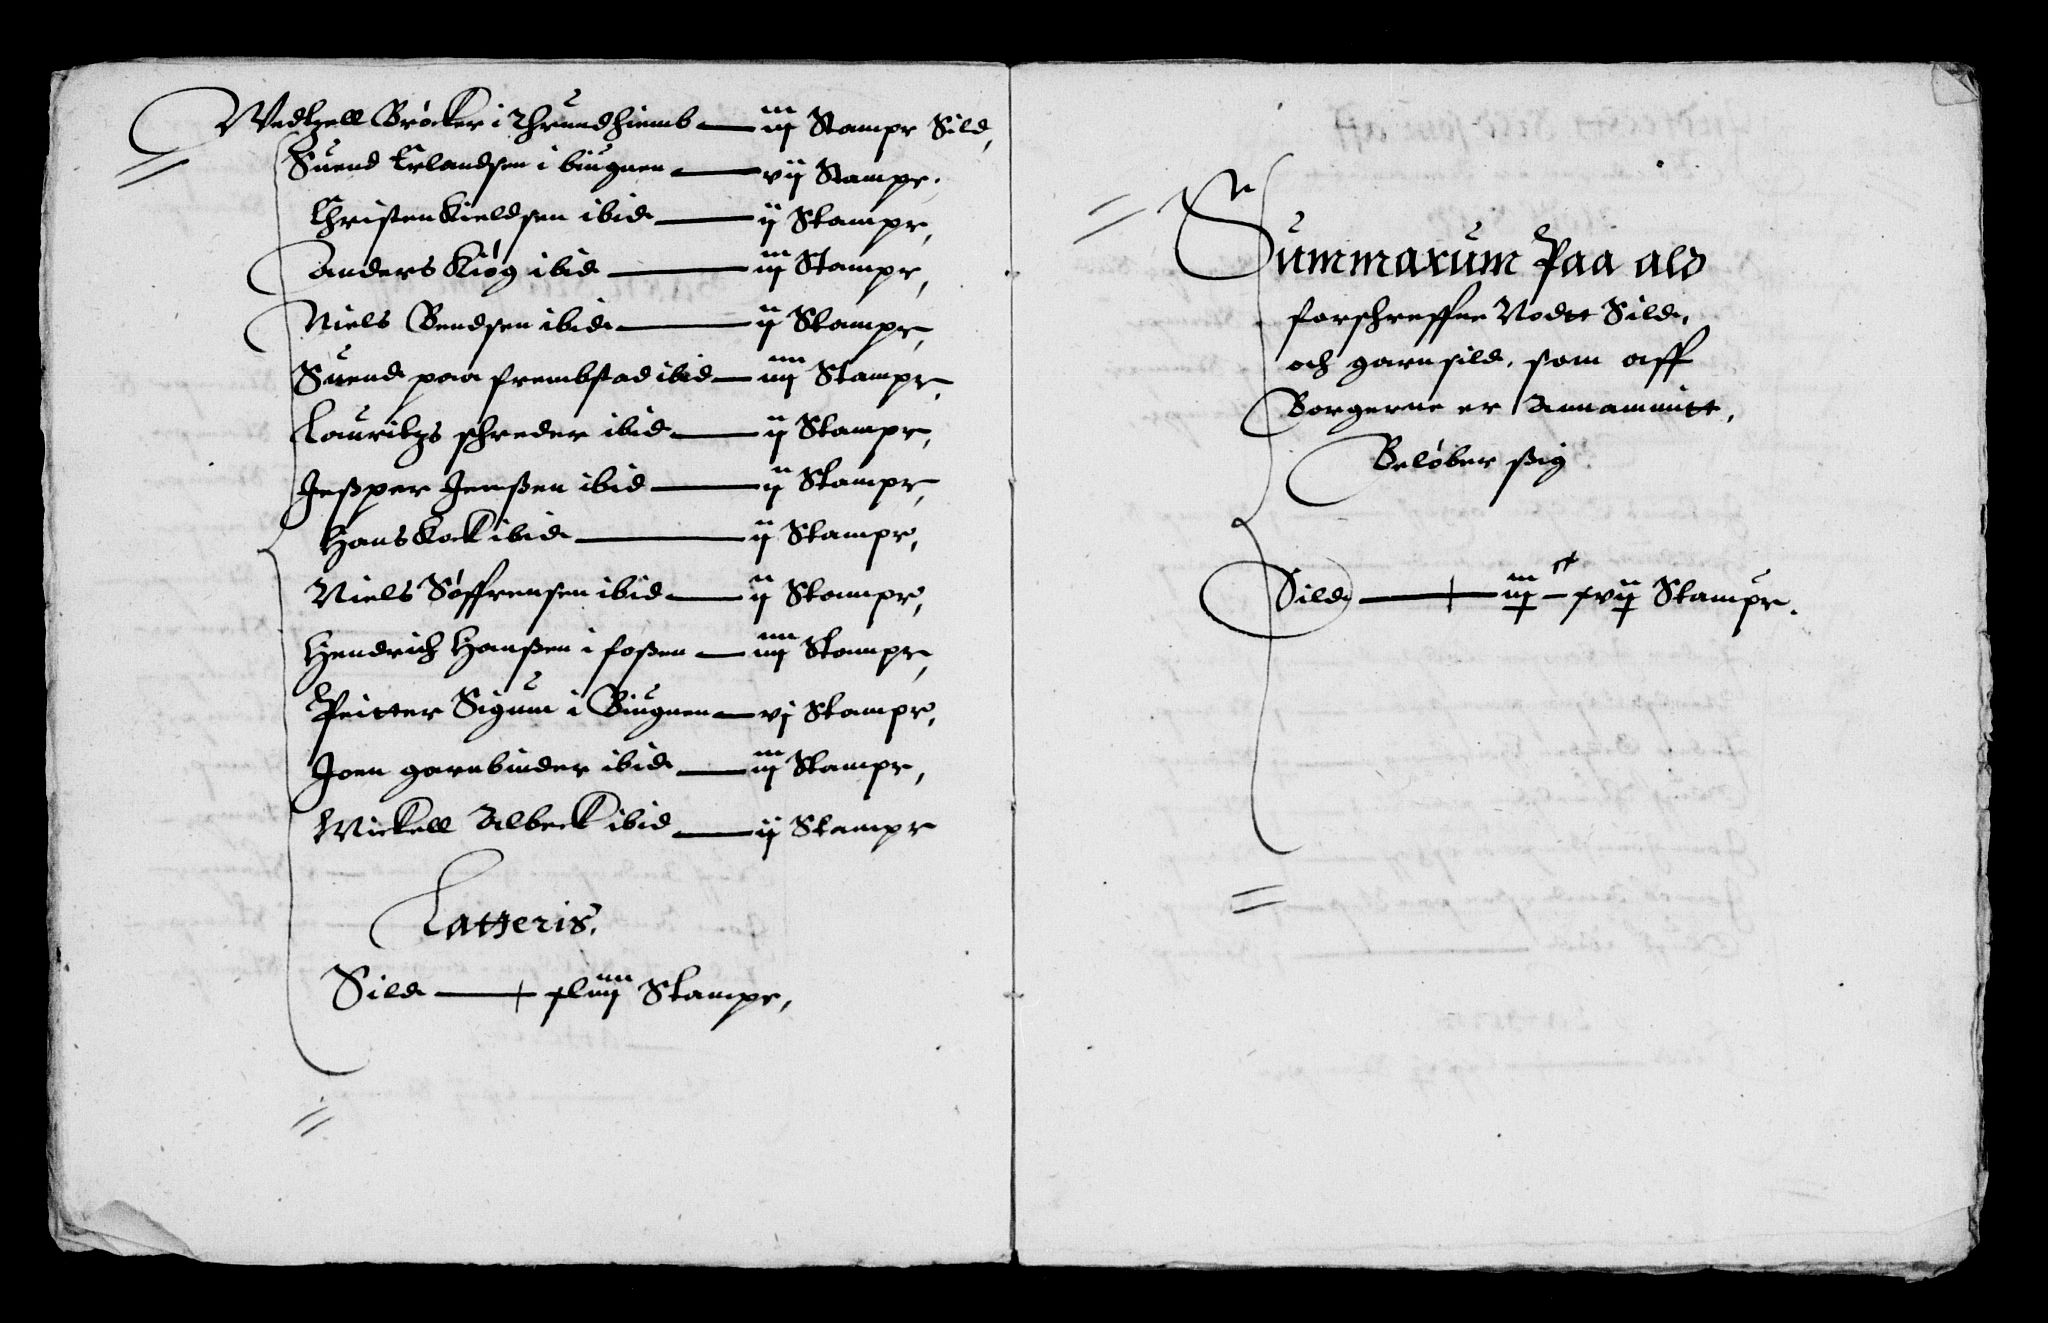 Wedtzell Brøcker i Thrundhiemb — iij Stampr Sild,
Suend Erlandsen i biugnen — vij Stampr.
Christen Kieldsen ibid — ij Stampr,
Anders Kiøg ibid — iij Stampr,
Niels Bendsen ibid — ij Stampr,
Suend paa frembstad ibid — iiij Stampr,
Lauritzs schreder ibid — ij Stampr,
Jeßper Jenßen ibid — ij Stampr,
Hans Kock ibid — ij Stampr,
Niels Søffrensen ibid — ij Stampr,
Hendrich Hanßen i foßen — iiij Stampr,
Peitter Sigum i Biugnen — vj Stampr,
Joen garnbinder ibid — iij Stampr,
Mickell Albeck ibid — ij Stampr
Latteris.
Sild — xliiij Stampr,
Summarum Paa ald
forschreffne Nodtt Sild,
och garnsild, som aff
Borgerne er Annammitt,
Beløber ßig
Sild — iij ct xvij Stampr.